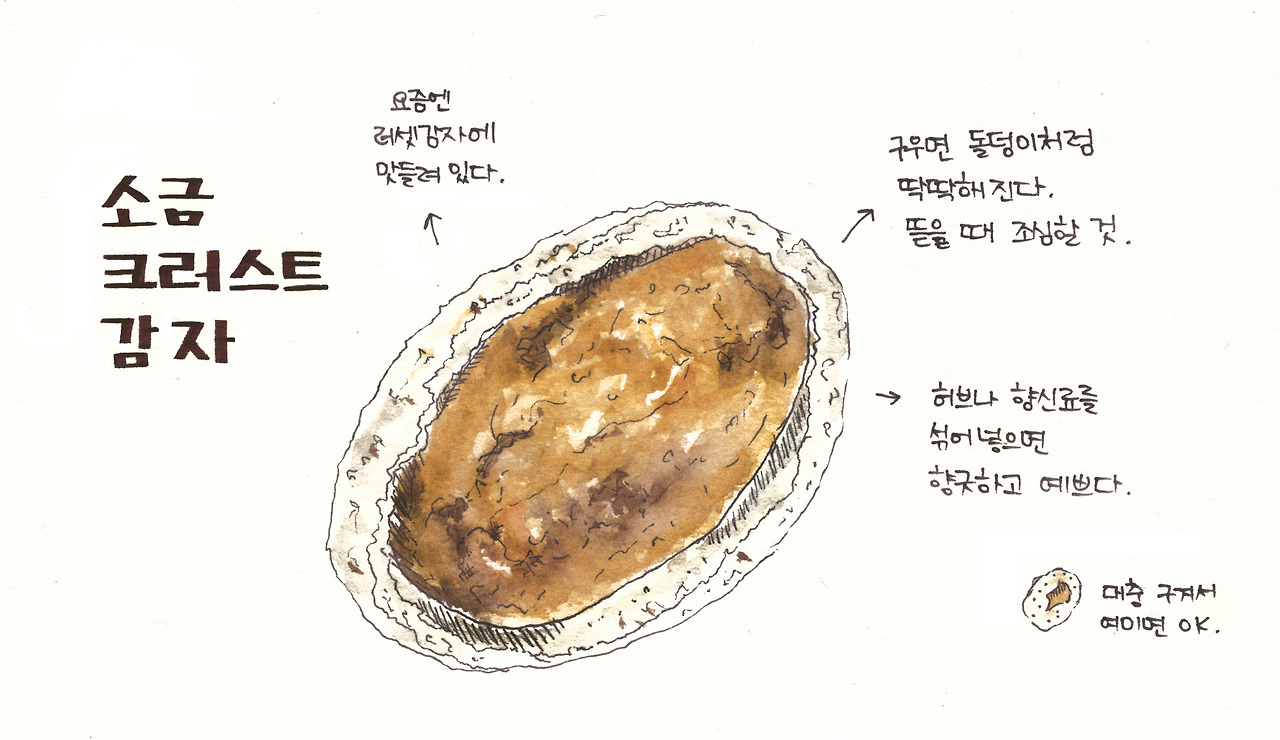 소금
크러스트
감자
요즘엔
러셋감자에
맛들려 있다.
구우면 돌덩이처럼
딱딱해진다.
뜯을 때 조심할 것.
허브나 향신료를
섞어 넣으면
향긋하고 예쁘다.
대충 구겨서
여미면 OK.